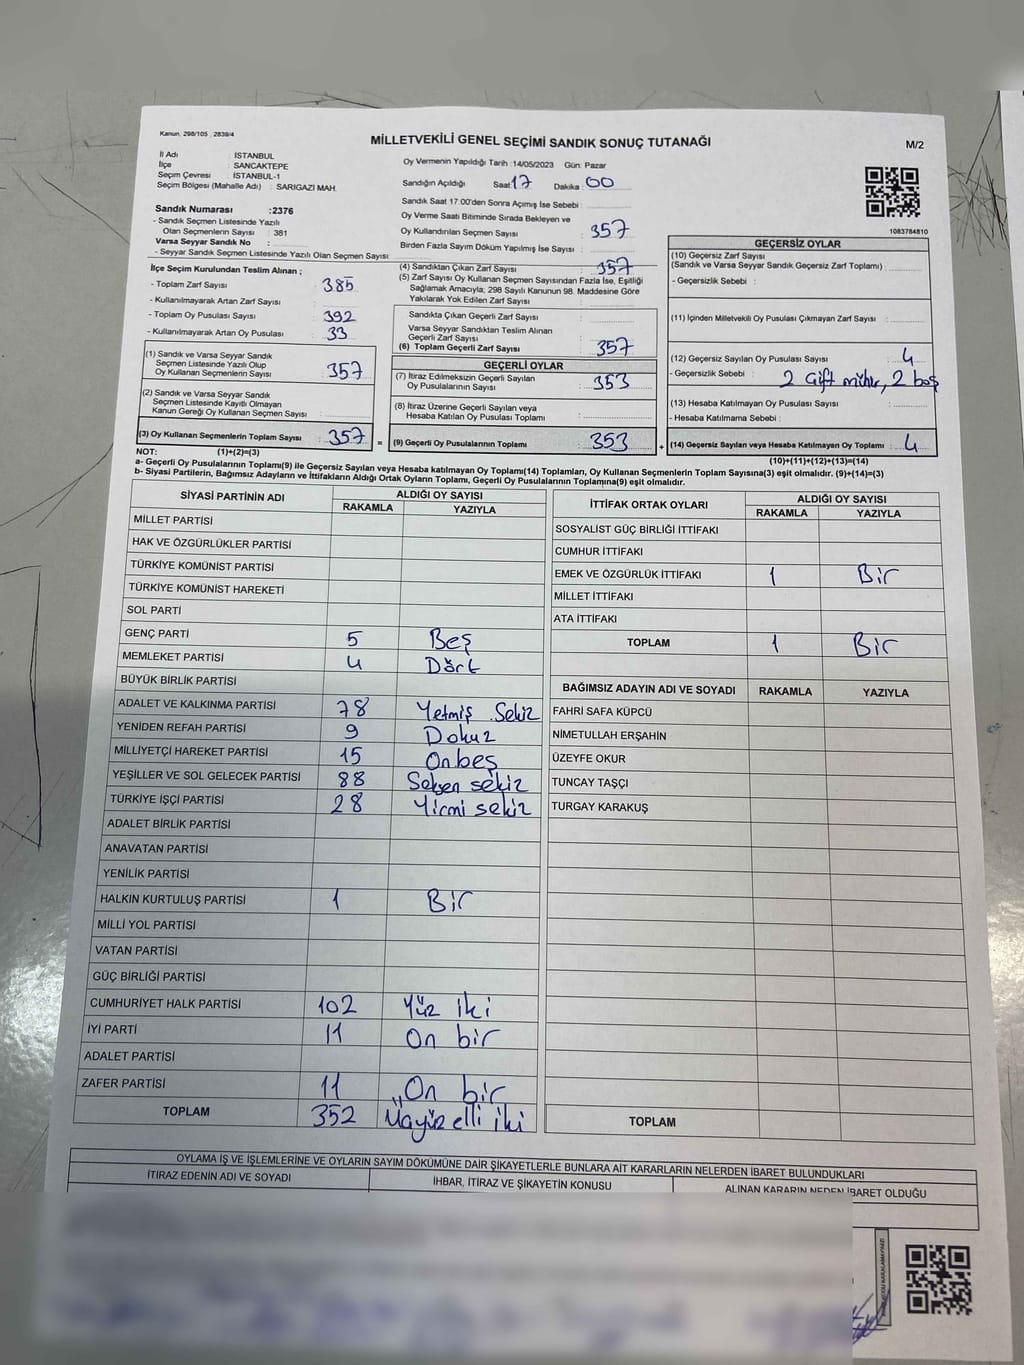 Kanun, 298/105 , 2839/4
MİLLETVEKİLİ GENEL SEÇİMİ SANDIK SONUÇ TUTANAĞI
M/2
İl Adı : İSTANBUL
İlçe : SANCAKTEPE
Seçim Çevresi : İSTANBUL-1
Seçim Bölgesi (Mahalle Adı) : SARIGAZİ MAH.
Sandık Numarası :2376
- Sandık Seçmen Listesinde Yazılı
Olan Seçmenlerin Sayısı : 381
Varsa Seyyar Sandık No :
- Seyyar Sandık Seçmen Listesinde Yazılı Olan Seçmen Sayısı
İlçe Seçim Kurulundan Teslim Alınan ;
- Toplam Zarf Sayısı : 385
- Kullanılmayarak Artan Zarf Sayısı :
- Toplam Oy Pusulası Sayısı : 392
- Kullanılmayarak Artan Oy Pusulası : 33
(1) Sandık ve Varsa Seyyar Sandık
Seçmen Listesinde Yazılı Olup
Oy Kullanan Seçmenlerin Sayısı : 357
(2) Sandık ve Varsa Seyyar Sandık
Seçmen Listesinde Kayıtlı Olmayan
Kanun Gereği Oy Kullanan Seçmen Sayısı :
(3) Oy Kullanan Seçmenlerin Toplam Sayısı : 357 =
(1)+(2)=(3)
Oy Vermenin Yapıldığı Tarih :14/05/2023 Gün: Pazar
Sandığın Açıldığı Saat: 17 Dakika : 00
Sandık Saat 17.00'den Sonra Açımış İse Sebebi :
Oy Verme Saati Bitiminde Sırada Bekleyen ve
Oy Kullandırılan Seçmen Sayısı : 357
Birden Fazla Sayım Döküm Yapılmış İse Sayısı :
(4) Sandıktan Çıkan Zarf Sayısı : 357
(5) Zarf Sayısı Oy Kullanan Seçmen Sayısından Fazla İse, Eşitliği
Sağlamak Amacıyla; 298 Sayılı Kanunun 98. Maddesine Göre
Yakılarak Yok Edilen Zarf Sayısı :
Sandıkta Çıkan Geçerli Zarf Sayısı :
Varsa Seyyar Sandıktan Teslim Alınan
Geçerli Zarf Sayısı :
(6) Toplam Geçerli Zarf Sayısı : 357
GEÇERLİ OYLAR
(7) İtiraz Edilmeksizin Geçerli Sayılan
Oy Pusulalarının Sayısı : 353
(8) İtiraz Üzerine Geçerli Sayılan veya
Hesaba Katılan Oy Pusulası Toplamı :
(9) Geçerli Oy Pusulalarının Toplamı : 353 +
1083784810
GEÇERSİZ OYLAR
(10) Geçersiz Zarf Sayısı
(Sandık ve Varsa Seyyar Sandık Geçersiz Zarf Toplamı) :
- Geçersizlik Sebebi :
(11) İçinden Milletvekili Oy Pusulası Çıkmayan Zarf Sayısı :
(12) Geçersiz Sayılan Oy Pusulası Sayısı : 4
- Geçersizlik Sebebi : 2 Çift mühür, 2 boş
(13) Hesaba Katılmayan Oy Pusulası Sayısı :
- Hesaba Katılmama Sebebi :
(14) Geçersiz Sayılan veya Hesaba Katılmayan Oy Toplamı : 4
(10)+(11)+(12)+(13)=(14)
NOT:
a- Geçerli Oy Pusulalarının Toplamı(9) ile Geçersiz Sayılan veya Hesaba katılmayan Oy Toplamı(14) Toplamları, Oy Kullanan Seçmenlerin Toplam Sayısına(3) eşit olmalıdır. (9)+(14)=(3)
b- Siyasi Partilerin, Bağımsız Adayların ve İttifakların Aldığı Ortak Oyların Toplamı, Geçerli Oy Pusulalarının Toplamına(9) eşit olmalıdır.
SİYASİ PARTİNİN ADI ALDIĞI OY SAYISI
RAKAMLA YAZIYLA
MİLLET PARTİSİ
HAK VE ÖZGÜRLÜKLER PARTİSİ
TÜRKİYE KOMÜNİST PARTİSİ
TÜRKİYE KOMÜNİST HAREKETİ
SOL PARTİ
GENÇ PARTİ 5 Beş
MEMLEKET PARTİSİ 4 Dört
BÜYÜK BİRLİK PARTİSİ
ADALET VE KALKINMA PARTİSİ 78 Yetmiş Sekiz
YENİDEN REFAH PARTİSİ 9 Dokuz
MİLLİYETÇİ HAREKET PARTİSİ 15 Onbeş
YEŞİLLER VE SOL GELECEK PARTİSİ 88 Seksen sekiz
TÜRKİYE İŞÇİ PARTİSİ 28 Yirmi sekiz
ADALET BİRLİK PARTİSİ
ANAVATAN PARTİSİ
YENİLİK PARTİSİ
HALKIN KURTULUŞ PARTİSİ 1 Bir
MİLLİ YOL PARTİSİ
VATAN PARTİSİ
GÜÇ BİRLİĞİ PARTİSİ
CUMHURİYET HALK PARTİSİ 102 Yüz iki
İYİ PARTİ 11 On bir
ADALET PARTİSİ
ZAFER PARTİSİ 11 On bir
TOPLAM 352 Üçyüz elli iki
İTTİFAK ORTAK OYLARI ALDIĞI OY SAYISI
RAKAMLA YAZIYLA
SOSYALİST GÜÇ BİRLİĞİ İTTİFAKI
CUMHUR İTTİFAKI
EMEK VE ÖZGÜRLÜK İTTİFAKI 1 Bir
MİLLET İTTİFAKI
ATA İTTİFAKI
TOPLAM 1 Bir
BAĞIMSIZ ADAYIN ADI VE SOYADI RAKAMLA YAZIYLA
FAHRİ SAFA KÜPCÜ
NİMETULLAH ERŞAHİN
ÜZEYFE OKUR
TUNCAY TAŞÇI
TURGAY KARAKUŞ
TOPLAM
OYLAMA İŞ VE İŞLEMLERİNE VE OYLARIN SAYIM DÖKÜMÜNE DAİR ŞİKAYETLERLE BUNLARA AİT KARARLARIN NELERDEN İBARET BULUNDUKLARI
İTİRAZ EDENİN ADI VE SOYADI İHBAR, İTİRAZ VE ŞİKAYETİN KONUSU ALINAN KARARIN NEDEN İBARET OLDUĞU